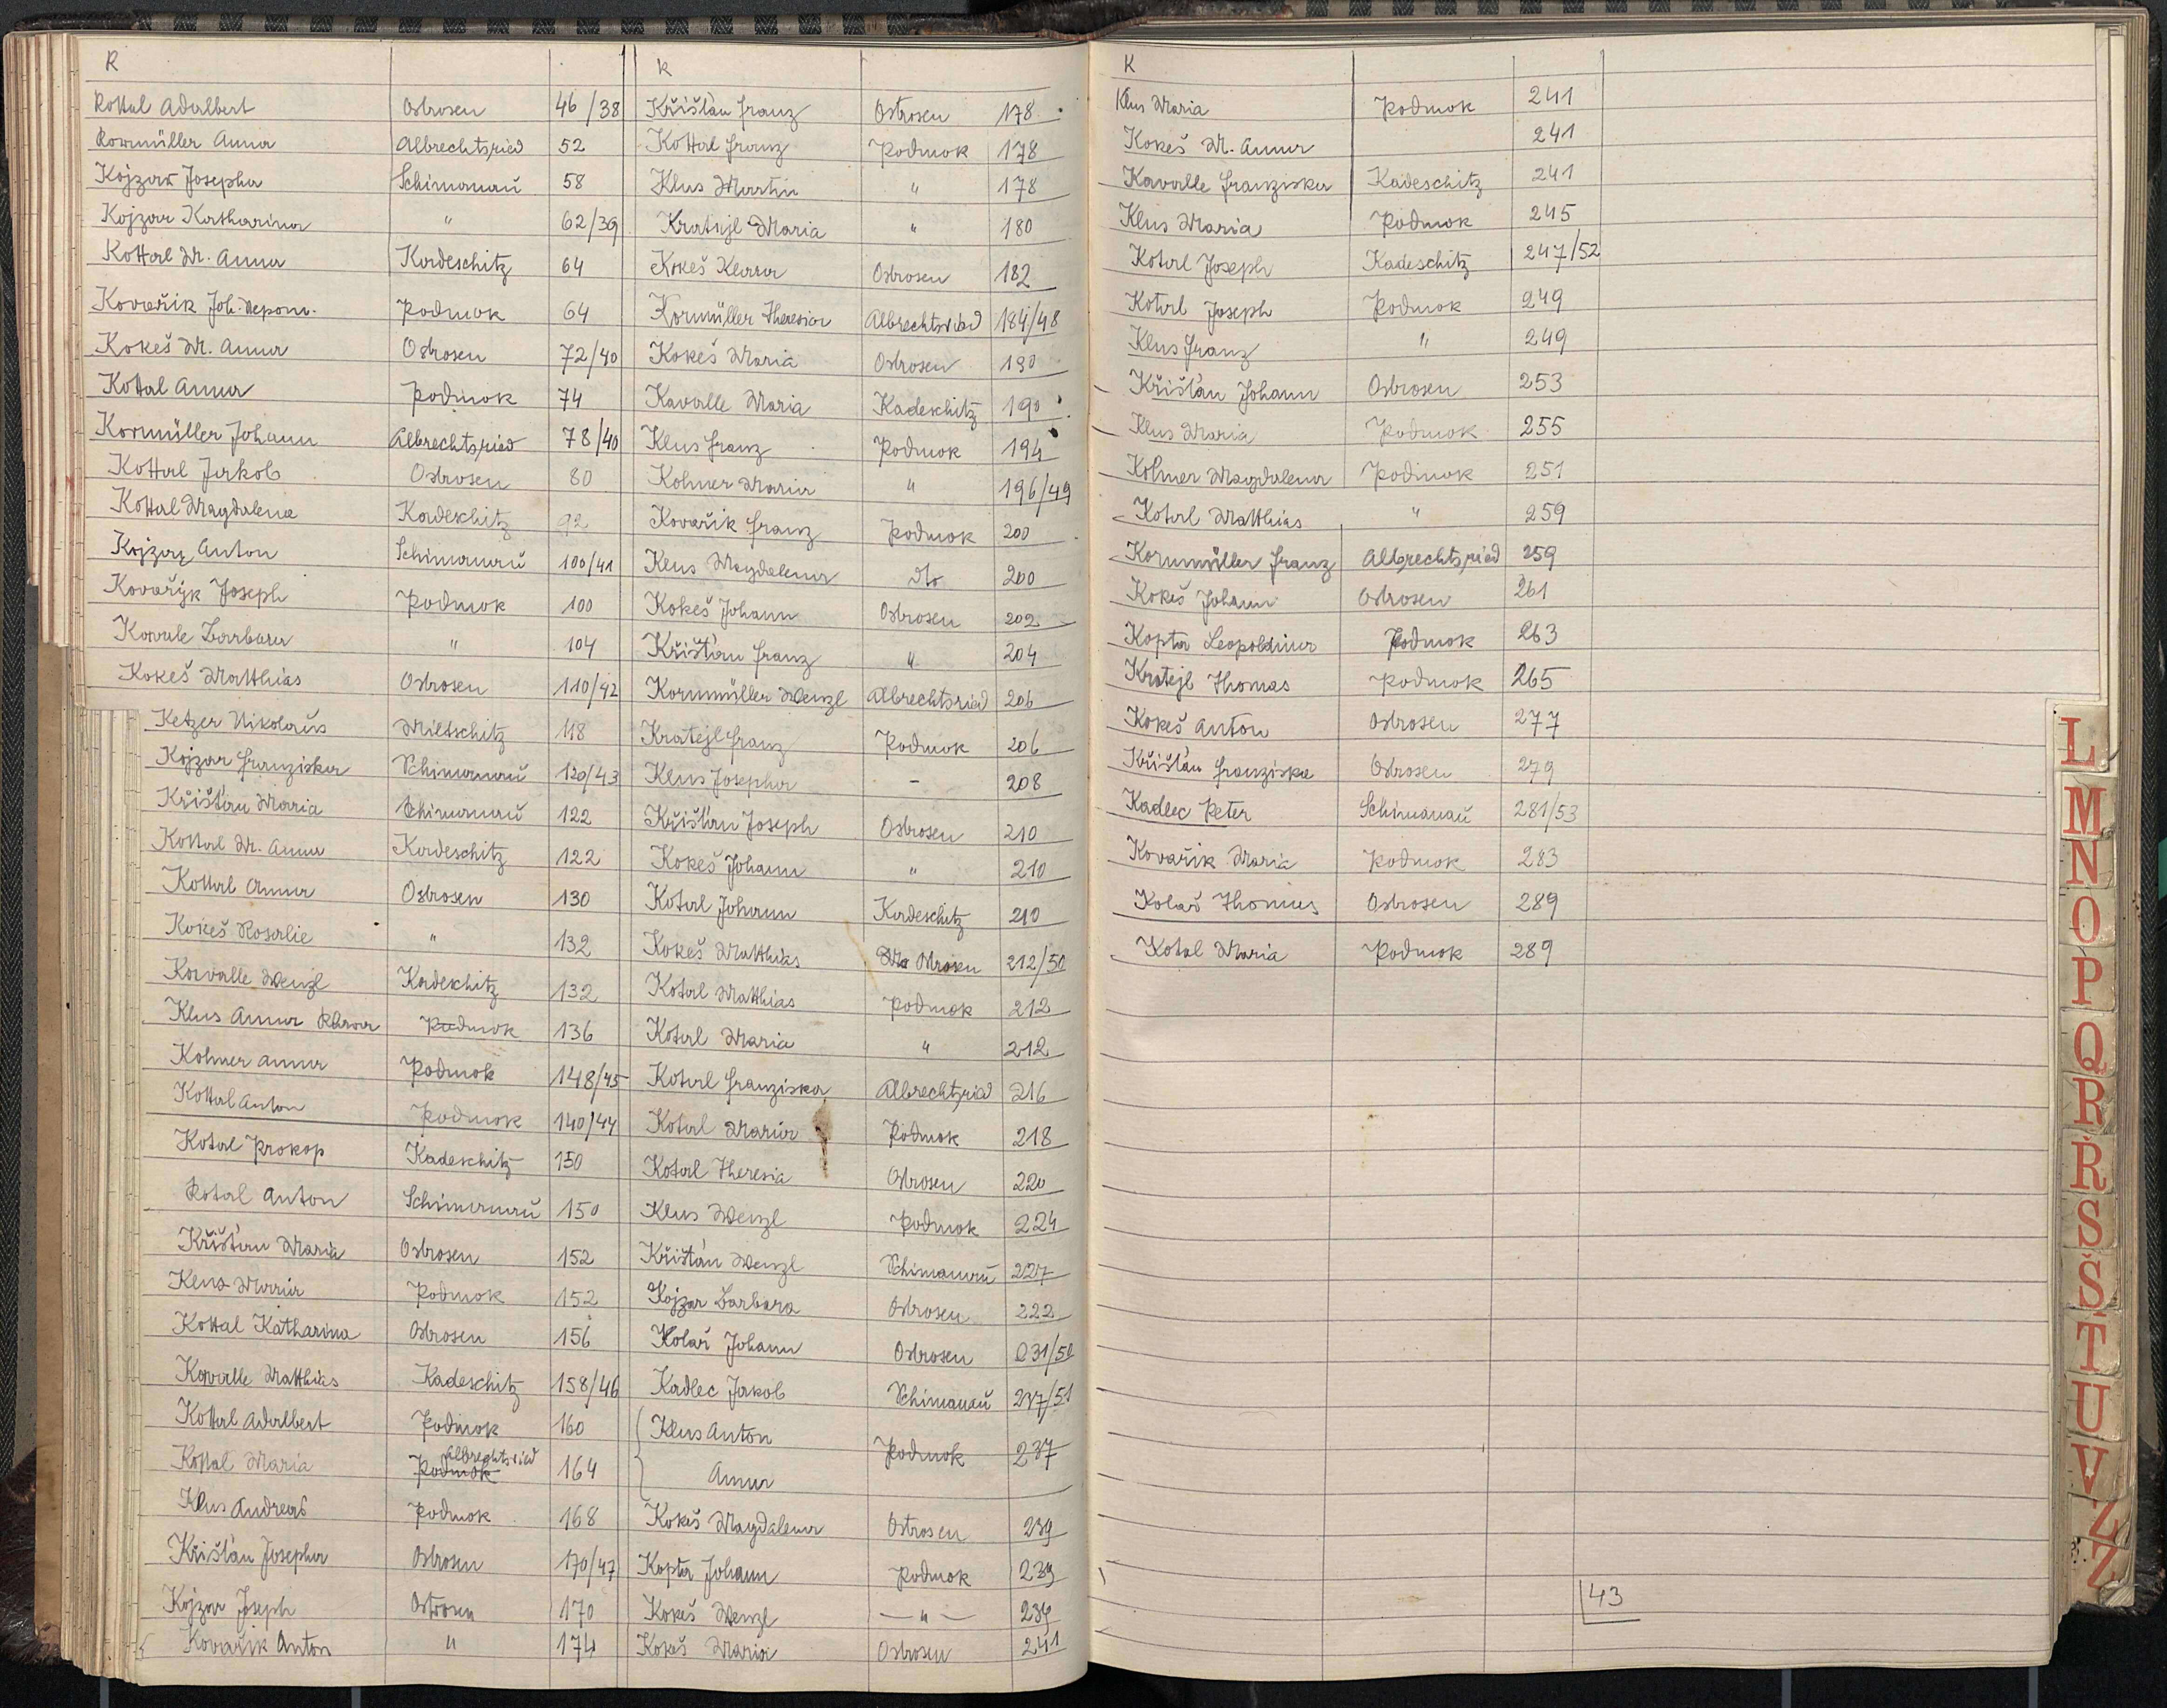 K
Kottal Adalbert Ostrosen 46/38
Kornmüller Anna Albrechtsried 52
Kojzar Josepha Schimanau 58
Kojzar Katharina " 62/39
Kottal M. Anna Kadeschitz 64
Kovařik Joh. Nepom. Podmok 64
Kokeš M. Anna Ostrosen 72/40
Kottal Anna Podmok 74
Kornmüller Johann Albrechtsried 78/40
Kottal Jakob Ostrosen 80
Kottal Magdalena Kadeschitz 92
Kojzar Anton Schimanau 100/41
Kovařyk Joseph Podmok 100
Kavale Barbara " 104
Kokeš Matthias Ostrosen 110/42
Ketzer Nikolaus Miltschitz 118
Kojzar Franziska Schimanau 120/43
Křišťan Maria Schimanau 122
Kottal M. Anna Kadeschitz 122
Kottal Anna Ostrosen 130
Kokeš Rosalie " 132
Kavalle Wenzl Kadeschitz 132
Klus Anna Podmok 136
Kohner Anna Podmok 148/45
Kottal Anton Podmok 140/44
Kotal Prokop Kadeschitz 150
Kotal Anton Schimanau 150
Křišťan Maria Ostrosen 152
Klus Maria Podmok 152
Kottal Katharina Ostrosen 156
Kavalle Matthias Kadeschitz 158/46
Kottal Adalbert Podmok 160
Kottal Maria Podmok Albrechtsried 164
Klus Andreas Podmok 168
Křišťan Josepha Ostrosen 170/47
Kojzar Joseph Ostrosen 170
Kovařik Anton " 174
K
Křišťan Franz Ostrosen 178
Kottal Franz Podmok 178
Klus Martin " 178
Kratejl Maria " 180
Kokeš Klara Ostrosen 182
Kornmüller Theresia Albrechtsried 184/48
Kokeš Maria Ostrosen 190
Kavalle Maria Kadeschitz 190
Klus Franz Podmok 194
Kohner Maria " 196/49
Kovařik Franz Podmok 200
Klus Magdalena dto 200
Kokeš Johann Ostrosen 202
Křišťan Franz " 204
Kornmüller Wenzl Albrechtsried 206
Kratejl Franz Podmok 206
Klus Josepha - 208
Křišťan Joseph Ostrosen 210
Kokeš Johann " 210
Kotal Johann Kadeschitz 210
Kokeš Matthias Ostrosen 212/50
Kotal Matthias Podmok 212
Kotal Maria " 212
Kotal Franziska Albrechtsried 216
Kotal Maria Podmok 218
Kotal Theresia Ostrosen 220
Klus Wenzl Podmok 224
Křišťan Wenzl Schimanau 227
Kojzar Barbara Ostrosen 222
Kolař Johann Ostrosen 231/50
Kadlec Jakob Schimanau 237/51
Klus Anton Podmok 237
Anna
Kokeš Magdalena Ostrosen 239
Kopta Johann Podmok 239
Kokeš Wenzl — " — 239
Kokeš Maria Ostrosen 241
K
Klus Maria Podmok 241
Kokeš M. Anna 241
Kavalle Franziska Kadeschitz 241
Klus Maria Podmok 245
Kotal Joseph Kadeschitz 247/52
Kotal Joseph Podmok 249
Klus Franz " 249
Křišťan Johann Ostrosen 253
Klus Maria Podmok 255
Kohner Magdalena Podmok 251
Kotal Matthias " 259
Kornmüller Franz Albrechtsried 259
Kokeš Johann Ostrosen 261
Kopta Leopoldina Podmok 263
Kratejl Thomas Podmok 265
Kokeš Anton Ostrosen 277
Křišťan Franziska Ostrosen 279
Kadlec Peter Schimanau 281/53
Kovařik Maria Podmok 283
Kolař Thomas Ostrosen 289
Kotal Maria Podmok 289
43
L
M
N
O
P
Q
R
Ř
S
Š
T
U
V
Z
Ž